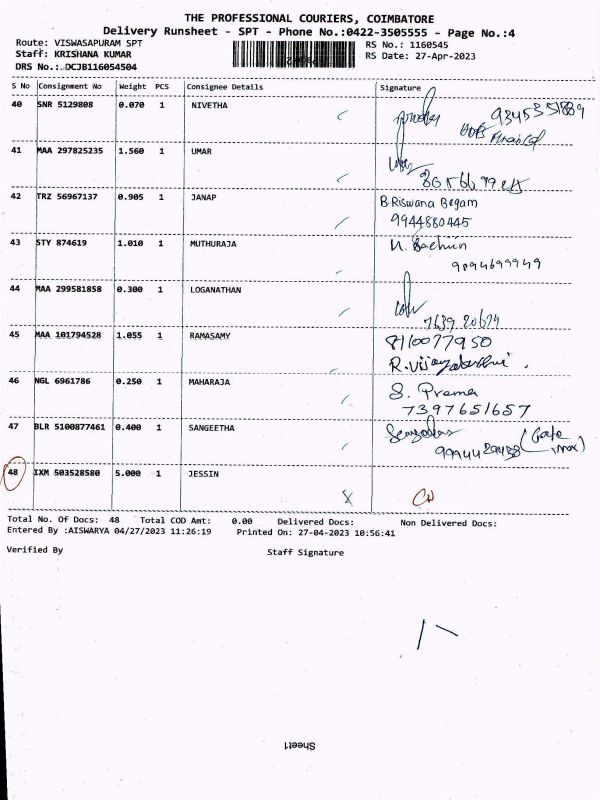 THE PROFESSIONAL COURIERS, COIMBATORE
Delivery Runsheet - SPT - Phone No.:0422-3505555 - Page No.:4
Route: VISWASAPURAM SPT
RS No.: 1160545
Staff: KRISHANA KUMAR
RS Date: 27-Apr-2023
DRS No.: DCJB116054504
S No Consignment No Weight PCS Consignee Details Signature
40 SNR 5129808 0.070 1 NIVETHA
41 MAA 297825235 1.560 1 UMAR
42 TRZ 56967137 0.905 1 JANAP B.Riswana Begam
9944880445
43 STY 874619 1.010 1 MUTHURAJA
9094699949
44 MAA 299581858 0.300 1 LOGANATHAN
45 MAA 101794528 1.055 1 RAMASAMY 8110077950
46 NGL 6961786 0.250 1 MAHARAJA S. Prema
7397651657
47 BLR 5100877461 0.400 1 SANGEETHA
48 IXM 503528580 5.000 1 JESSIN
Total No. Of Docs: 48 Total COD Amt: 0.00 Delivered Docs: Non Delivered Docs:
Entered By :AISWARYA 04/27/2023 11:26:19 Printed On: 27-04-2023 10:56:41
Verified By Staff Signature
Sheet1